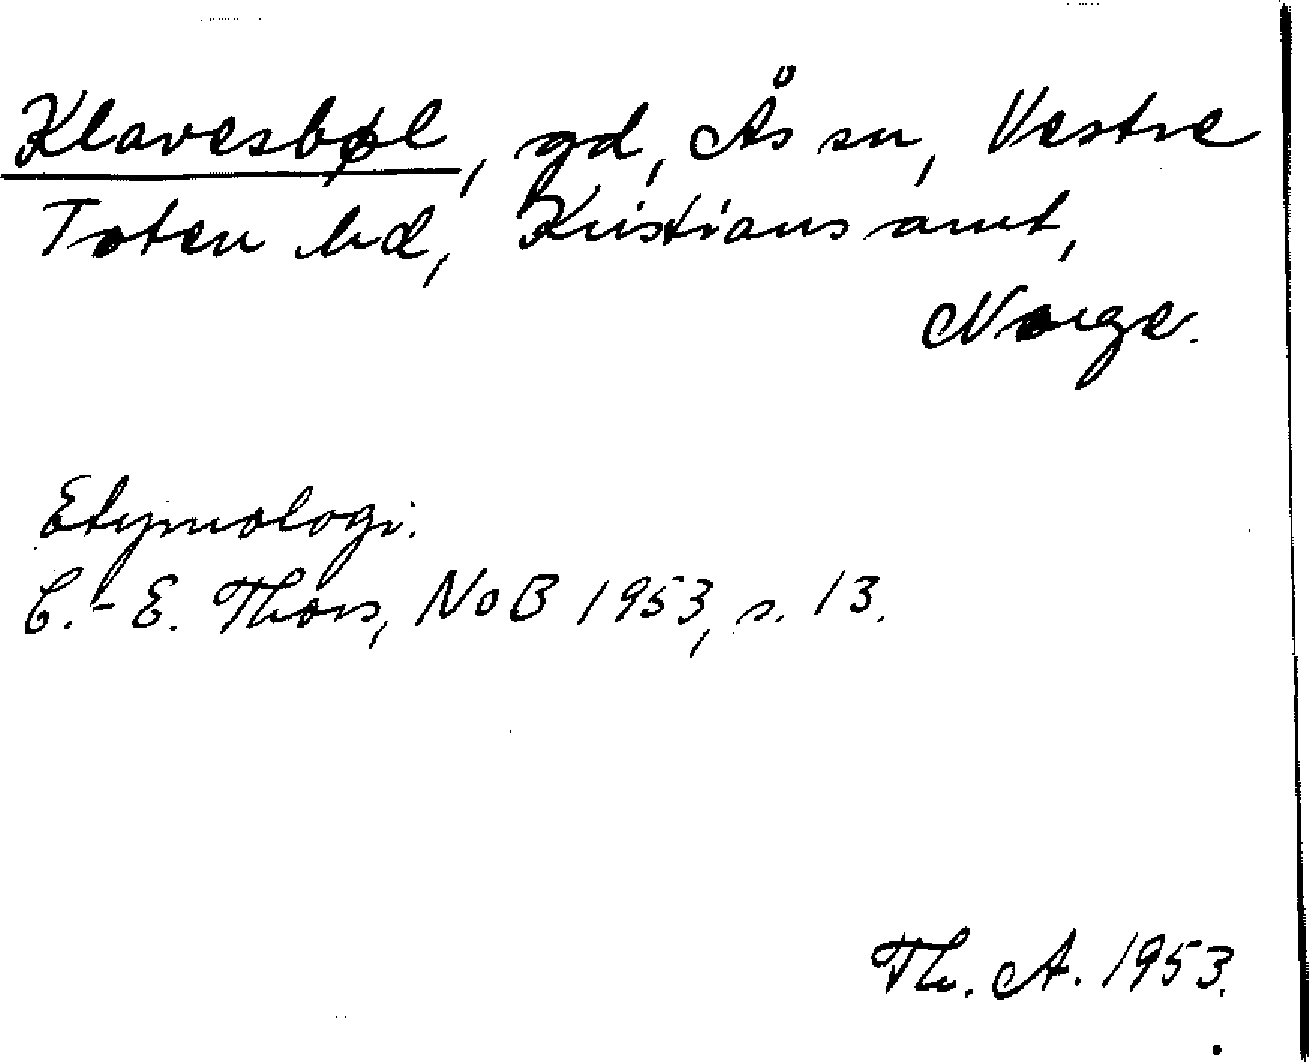 Klavesbøl, gd, Ås sn, Vestre
Toten hd, Kristians amt,
Norge.
Etymologi.
C.-E. Thors, NoB 1953, s. 13.
Th. A. 1953.